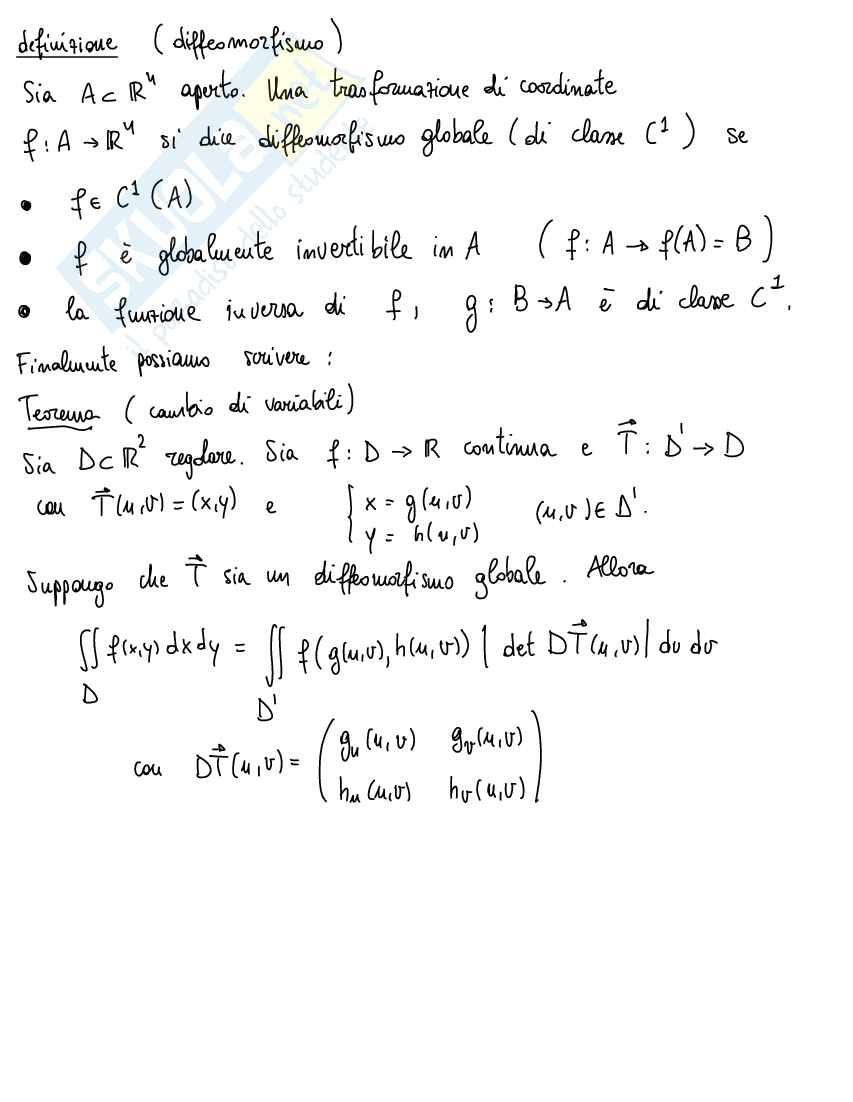 definizione (diffeomorfismo)
Sia A⊂ℝⁿ aperto. Una trasformazione di coordinate
f: A → ℝⁿ si dice diffeomorfismo globale (di classe C¹) se
• f ∈ C¹(A)
• f è globalmente invertibile in A (f: A → f(A) = B)
• la funzione inversa di f, g: B→A è di classe C¹.
Finalmente possiamo scrivere:
Teorema (cambio di variabili)
Sia D⊂ℝ² regolare. Sia f: D → ℝ continua e T⃗: D' → D
con T⃗(u,v) = (x,y) e { x = g(u,v) (u,v) ∈ D'.
y = h(u,v)
Suppongo che T⃗ sia un diffeomorfismo globale. Allora
∬_D f(x,y) dx dy = ∬_D' f(g(u,v), h(u,v)) | det DT⃗(u,v)| du dv
con DT⃗(u,v) = ( g_u(u,v) g_v(u,v)
h_u(u,v) h_v(u,v) )
SKUOLA.net
il paradiso dello studente